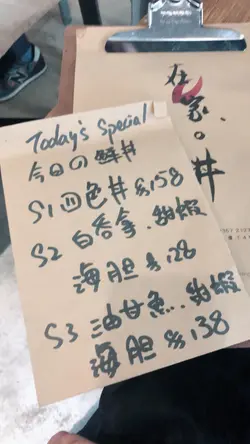 Today's Special
今日の鮮丼
S1 四色丼 $158
S2 白香拿.甜蝦
海胆 $128
S3 油甘魚..甜蝦
海胆 $138
在家。丼